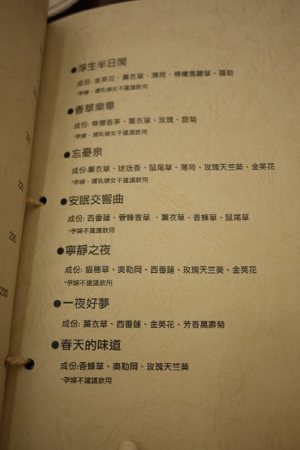 ●浮生半日閒
成份: 金英花、薰衣草、薄荷、檸檬馬鞭草、羅勒
*孕婦、護乳婦女不建議飲用
●香草樂章
成份: 檸檬香茅、薰衣草、玫瑰、甜菊
*孕婦、護乳婦女不建議飲用
●忘憂泉
成份:薰衣草、迷迭香、鼠尾草、薄荷、玫瑰天竺葵、金英花
*孕婦、護乳婦女不建議飲用
●安眠交響曲
成份: 西番蓮、管蜂香草、薰衣草、香蜂草、鼠尾草
*孕婦不建議飲用
●寧靜之夜
成份: 貓穗草、奧勒岡、西番蓮、玫瑰天竺葵、金英花
*孕婦不建議飲用
●一夜好夢
成份: 薰衣草、西番蓮、金英花、芳香萬壽菊
*孕婦不建議飲用
●春天的味道
成份:香蜂草、奧勒岡、玫瑰天竺葵
*孕婦不建議飲用
220
220